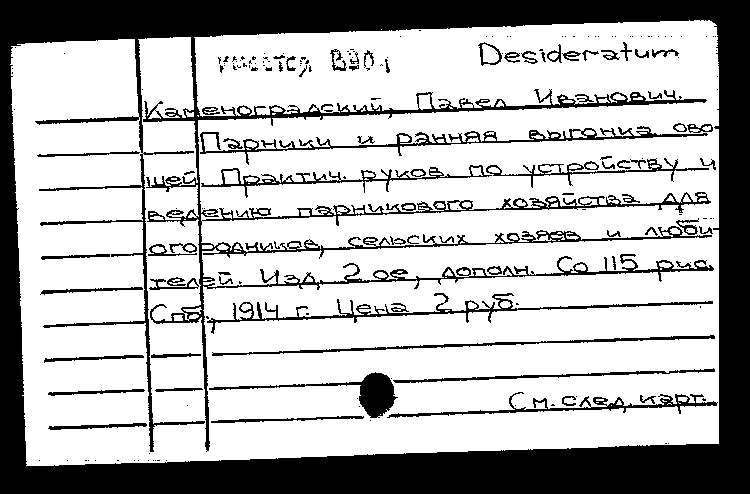 имеется В90.1 Desideratum
Каменоградский, Павел Иванович.
Парники и ранняя выгонка ово-
щей. Практич. руков. по устройству и
ведению парникового хозяйства для
огородников, сельских хозяев и люби-
телей. Изд. 2ое, дополн. Со 115 рис.
Спб., 1914 г. Цена 2 руб.
См. след. карт.